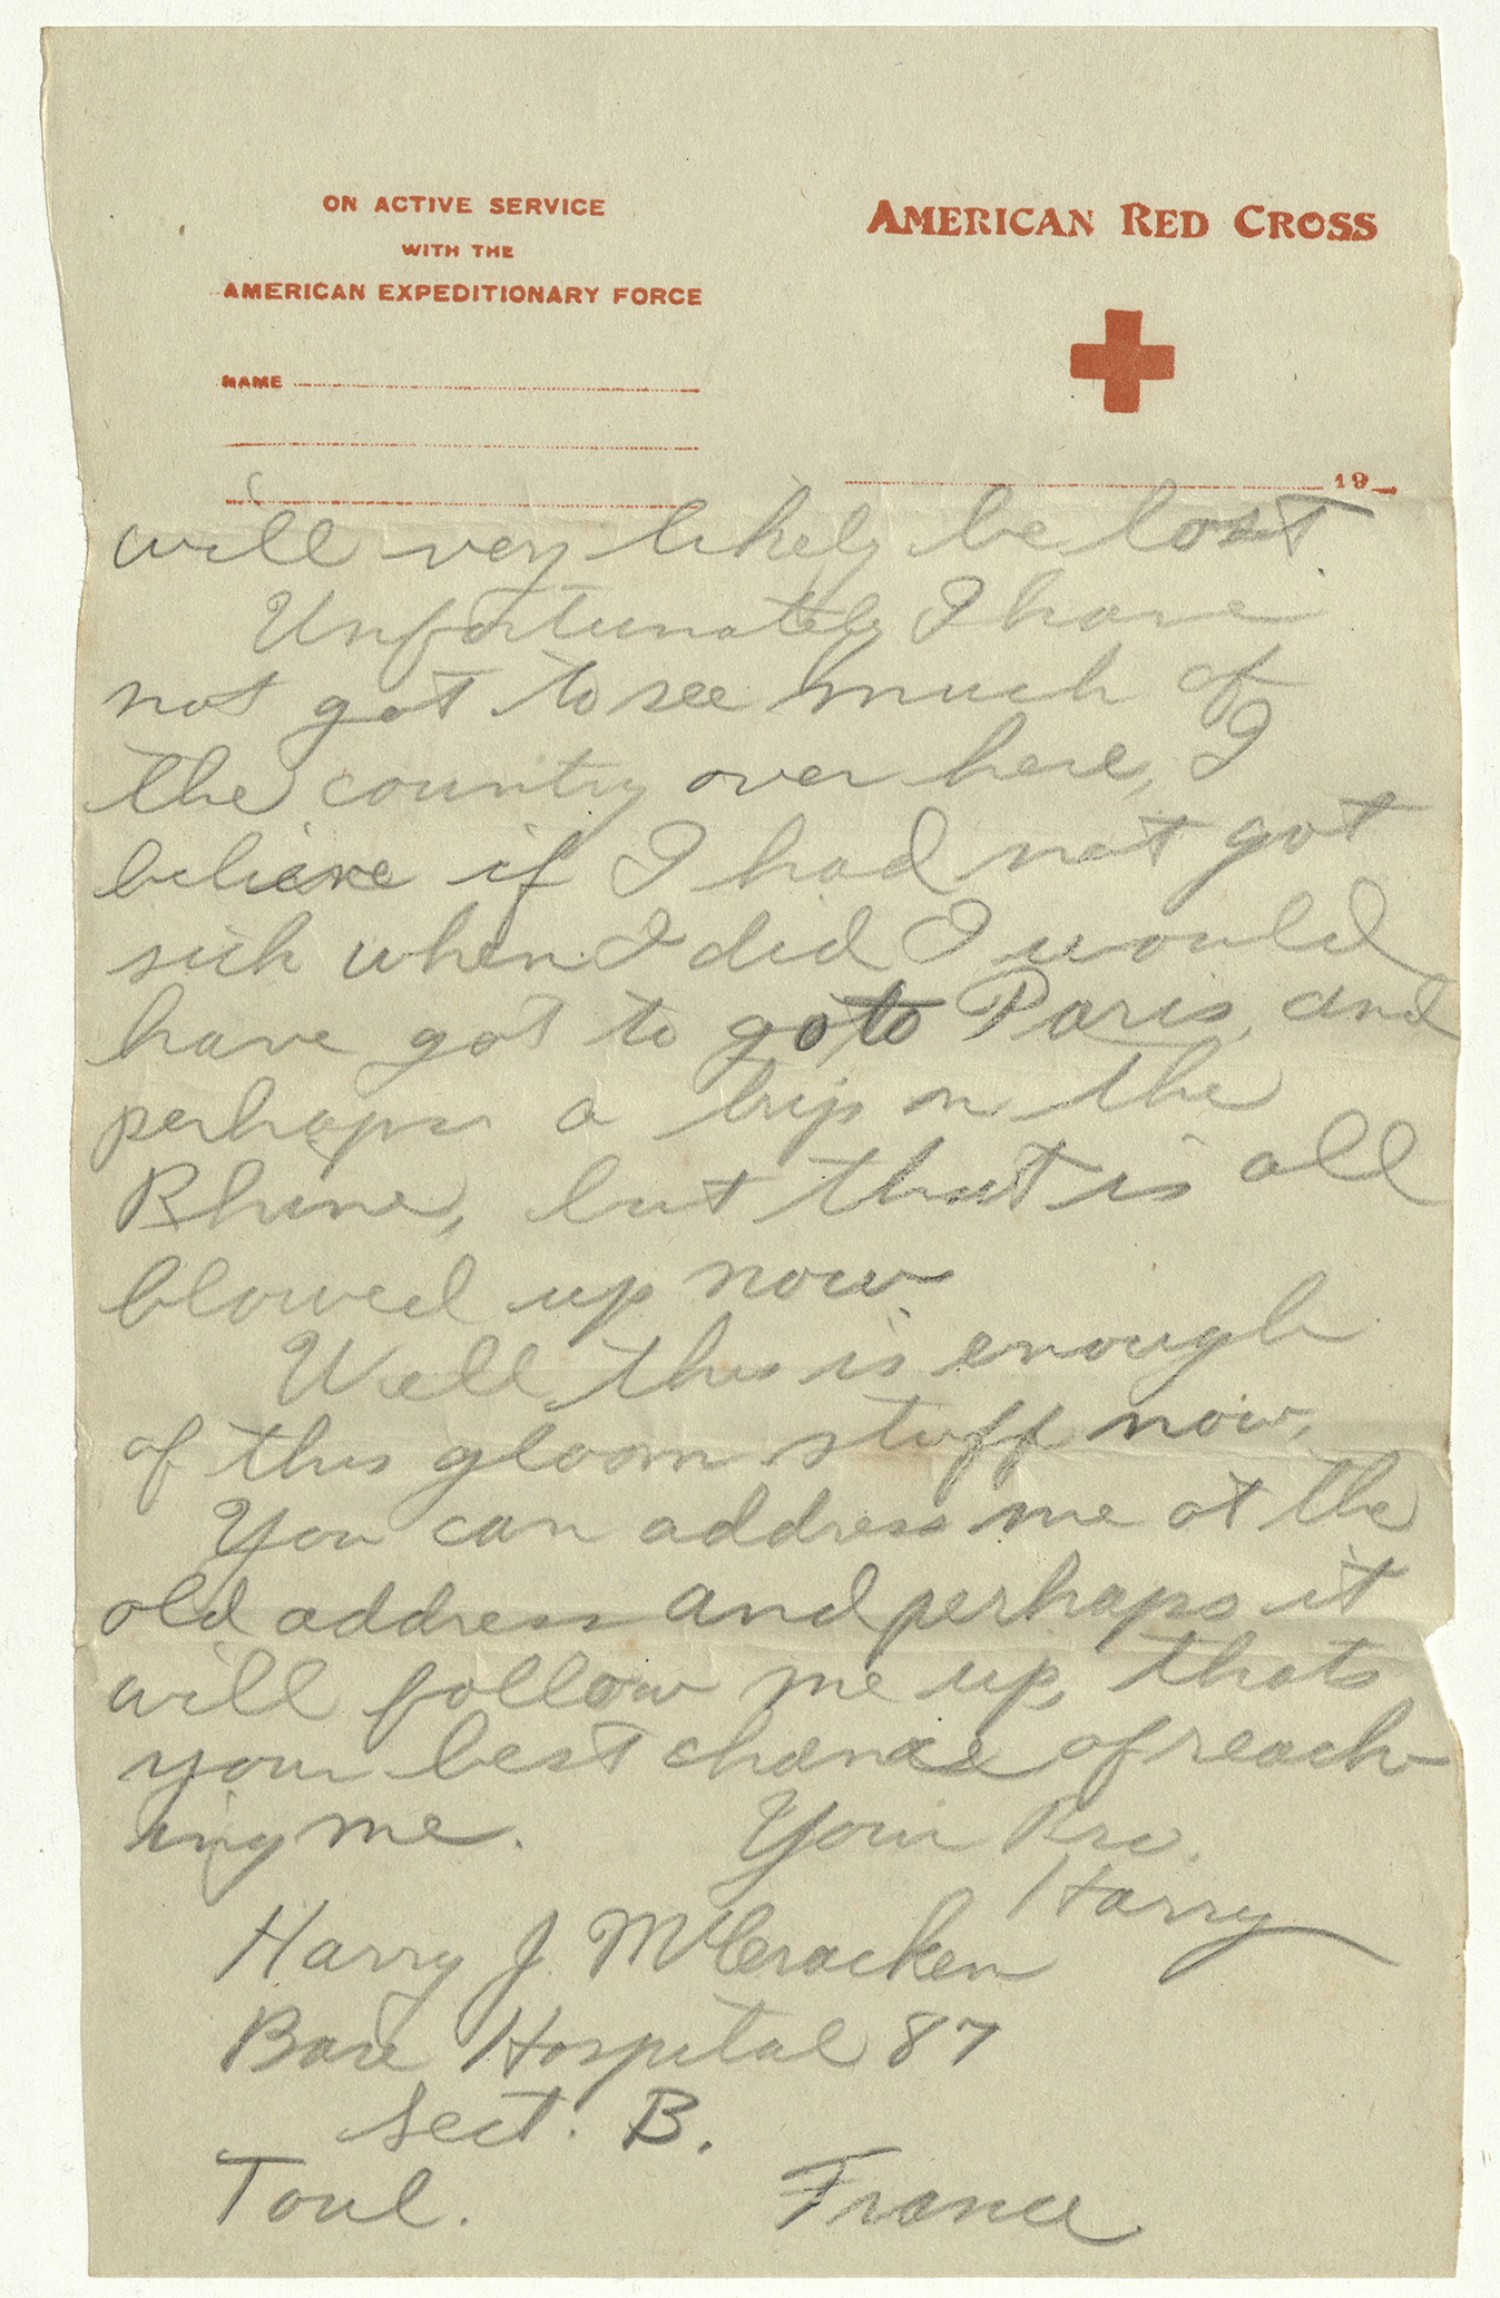 ON ACTIVE SERVICE
WITH THE
AMERICAN EXPEDITIONARY FORCE
NAME
AMERICAN RED CROSS
19
will very likely be lost.
Unfortunately I have
not got to see much of
the country over here, I
believe if I had not got
sick when I did I would
have got to go to Paris, and
perhaps a trip on the
Rhine, but that is all
blowed up now
Well this is enough
of this gloom stuff now.
You can address me at the
old address and perhaps it
will follow me up, thats
your best chance of reach-
ing me. Your Bro.
Harry
Harry J. McCracken
Base Hospital 87
Sect. B.
Toul. France